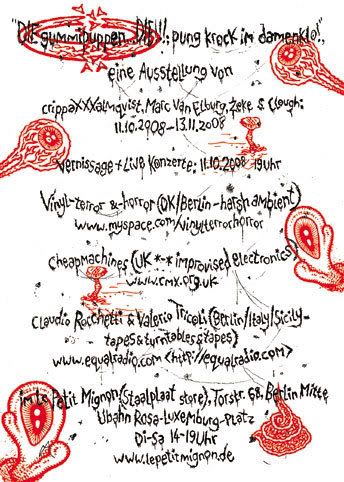 "DIE gummipuppen DIE!!!: pung krock im damenklo!"
eine Ausstellung von
crippaXXXalmqvist, Marc Van Elburg, Zeke S Clough;
11.10.2008-13.11.2008
Vernissage + Live Konzerte: 11.10.2008 19Uhr
Vinyl-terror &-horror (DK/Berlin-harsh ambient)
www.myspace.com/vinylterrorhorror
Cheapmachines (UK *-* improvised electronics)
www.cmx.org.uk
Claudio Rocchetti & Valerio Tricoli (Berlin/Italy/Sicily-
tapes&turntables&tapes)
www.equalradio.com <http://equalradio.com>
into Petit Mignon (Staalplaat store), Torstr. 68, Berlin Mitte
Ubahn Rosa-Luxemburg-Platz
Di-Sa 14-19Uhr
www.lepetitmignon.de